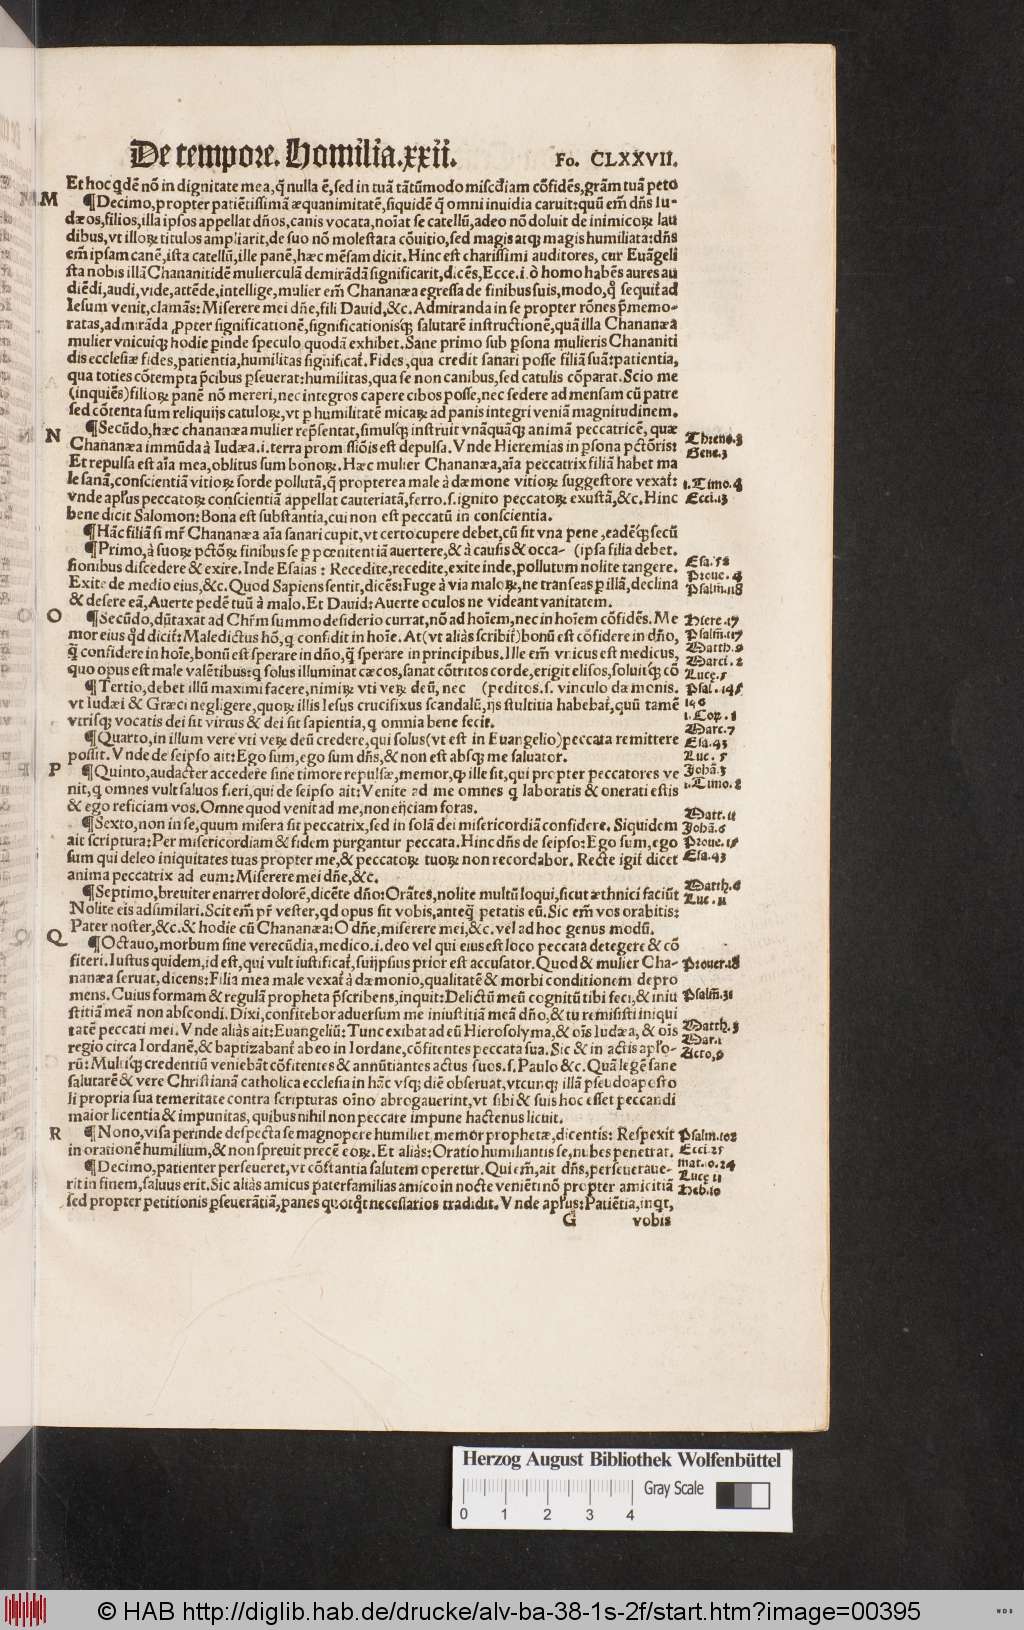 De tempore. Homilia.xxii. Fo. CLXXVII.
Et hoc qdẽ nõ in dignitate mea, q̃ nulla ẽ, sed in tuã tãtũmodo miscd̃iam cõfidẽs, grãm tuã peto
M ¶Decimo, propter patiẽtissimã æquanimitatẽ, siquidẽ q̃ omni inuidia caruit: quũ em̃ dñs Iu-
dæos, filios, illa ipsos appellat dños, canis vocata, noĩat se catellũ, adeo nõ doluit de inimicoꝝ lau
dibus, vt illoꝝ titulos ampliarit, de suo nõ molestata cõuitio, sed magis atqꝫ magis humiliata: dñs
em̃ ipsam canẽ, ista catellũ, ille panẽ, hæc mẽsam dicit. Hinc est charissimi auditores, cur Euãgeli
sta nobis illã Chananitidẽ mulierculã demirãdã significarit, dicẽs, Ecce .i. ò homo habẽs aures au
diẽdi, audi, vide, attẽde, intellige, mulier em̃ Chananæa egressa de finibus suis, modo, q̊ sequit̃ ad
Iesum venit, clamãs: Miserere mei dñe, fili Dauid, &c. Admiranda in se propter rõnes p̃memo-
ratas, admirãda ꝓpter significationẽ, significationisq̃ꝫ salutarẽ instructionẽ, quã illa Chananæa
mulier vnicuiqꝫ hodie ꝑinde speculo quodã exhibet. Sane primo sub ꝑsona mulieris Chananiti
dis ecclesiæ fides, patientia, humilitas significat̃. Fides, qua credit sanari posse filiã suã: patientia,
qua toties cõtempta p̃cibus ꝑseuerat: humilitas, qua se non canibus, sed catulis cõparat. Scio me
(inquiẽs) filioꝝ panẽ nõ mereri, nec integros capere cibos posse, nec sedere ad mensam cũ patre
sed cõtenta sum reliquijs catuloꝝ, vt ꝑ humilitatẽ micaꝝ ad panis integri veniã magnitudinem.
N ¶Secũdo, hæc chananæa mulier rep̃sentat, simulq̃ꝫ instruit vnãquãqꝫ animã peccatricẽ, quæ
Chananæa immũda à Iudæa .i. terra promissiõis est depulsa. Vnde Hieremias in ꝑsona pctõris: Threno.3
Et repulsa est aĩa mea, oblitus sum bonoꝝ. Hæc mulier Chananæa, aĩa peccatrix filiã habet ma Gene.3
le sanã, conscientiã vitioꝝ sorde pollutã, q̃ propterea male à dæmone vitioꝝ suggestore vexat̃: 1.Timo.4
vnde apl̃us peccatoꝝ conscientiã appellat cauteriatã, ferro .s. ignito peccatoꝝ exustã, &c. Hinc Ecci.13
bene dicit Salomon: Bona est substantia, cui non est peccatũ in conscientia.
¶Hãc filiã si mr̃ Chananæa aĩa sanari cupit, vt certo cupere debet, cũ sit vna pene, eadẽq̃ꝫ secũ
¶Primo, à suoꝝ pctõꝝ finibus se ꝑ pœnitentiã auertere, & à causis & occa- (ipsa filia debet.
sionibus discedere & exire. Inde Esaias: Recedite, recedite, exite inde, pollutum nolite tangere. Esa.52
Exite de medio eius, &c. Quod Sapiens sentit, dicẽs: Fuge à via maloꝝ, ne transeas ꝑ illã, declina Proue.4
& desere eã, Auerte pedẽ tuũ à malo. Et Dauid: Auerte oculos ne videant vanitatem. Psalm.118
O ¶Secũdo, dũtaxat ad Chr̃m summo desiderio currat, nõ ad hoĩem, nec in hoĩem cõfidẽs. Me Hiere.17
mor eius qd̃ dicit̃: Maledictus hõ, q̨ confidit in hoĩe. At (vt aliàs scribit̃) bonũ est cõfidere in dño, Psalm.117
q̃ confidere in hoĩe, bonũ est sperare in dño, q̃ sperare in principibus. Ille em̃ vnicus est medicus, Matth.9
quo opus est male valẽtibus: q̨ solus illuminat cæcos, sanat cõtritos corde, erigit elisos, soluitq̃ꝫ cõ Marci.2
¶Tertio, debet illũ maximi facere, nimiꝝ vti veꝝ deũ, nec (peditos .s. vinculo dæmonis. Luce.5 Psal.145
vt Iudæi & Græci negligere, quoꝝ illis Iesus crucifixus scandalũ, ijs stultitia habebat̃, quũ tamẽ 146
vtrisqꝫ vocatis dei sit virtus & dei sit sapientia, q̨ omnia bene fecit. 1.Coꝝ.1
¶Quarto, in illum vere vti veꝝ deũ credere, qui solus (vt est in Euangelio) peccata remittere Marc.7 Esa.43
possit. Vnde de seipso ait: Ego sum, ego sum dñs, & non est absqꝫ me saluator. Luc.5
P ¶Quinto, audacter accedere sine timore repulsæ, memor, ꝙ ille sit, qui propter peccatores ve Johã.3
nit, q̨ omnes vult saluos fieri, qui de seipso ait: Venite ad me omnes q̨ laboratis & onerati estis 1.Timo.2
& ego reficiam vos. Omne quod venit ad me, non eijciam foras. Matt.11
¶Sexto, non in se, quum misera sit peccatrix, sed in solã dei misericordiã confidere. Siquidem Johã.6
ait scriptura: Per misericordiam & fidem purgantur peccata. Hinc dñs de seipso: Ego sum, ego Proue.15
sum qui deleo iniquitates tuas propter me, & peccatoꝝ tuoꝝ non recordabor. Recte igit̃ dicet Esa.43
anima peccatrix ad eum: Miserere mei dñe, &c.
¶Septimo, breuiter enarret dolorẽ, dicẽte dño: Orãtes, nolite multũ loqui, sicut æthnici faciũt Matth.6
Nolite eis adsimilari. Scit em̃ pr̃ vester, qd opus sit vobis, anteq̃ petatis eũ. Sic em̃ vos orabitis: Luc.11
Pater noster, &c. & hodie cũ Chananæa: O dñe, miserere mei, &c. vel ad hoc genus modũ.
Q ¶Octauo, morbum sine verecũdia, medico .i. deo vel qui eius est loco peccata detegere & cõ
fiteri. Iustus quidem, id est, qui vult iustificat̃, suijpsius prior est accusator. Quod & mulier Cha- Prouer.18
nanæa seruat, dicens: Filia mea male vexat̃ à dæmonio, qualitatẽ & morbi conditionem depro
mens. Cuius formam & regulã propheta p̃scribens, inquit: Delictũ meũ cognitũ tibi feci, & iniu Psalm̃.31
stitiã meã non abscondi. Dixi, confitebor aduersum me iniustitiã meã dño, & tu remisisti iniqui
tatẽ peccati mei. Vnde aliàs ait: Euangeliũ: Tunc exibat ad eũ Hierosolyma, & oĩs Iudæa, & oĩs Matth.3
regio circa Iordanẽ, & baptizabant̃ ab eo in Iordane, cõfitentes peccata sua. Sic & in actis apl̃o- Mar.1
rũ: Multiq̃ꝫ credentiũ veniebãt cõfitentes & annũtiantes actus suos .s. Paulo &c. Quã legẽ sane Acto.9
salutarẽ & vere Christianã catholica ecclesia in hãc vsqꝫ diẽ obseruat, vtcunqꝫ illã pseudoaposto
li propria sua temeritate contra scripturas oĩno abrogauerint, vt sibi & suis hoc esset peccandi
maior licentia & impunitas, quibus nihil non peccare impune hactenus licuit.
R ¶Nono, visa perinde despecta se magnopere humiliet, memor prophetæ, dicentis: Respexit Psalm.102
in orationẽ humilium, & non spreuit precẽ eoꝝ. Et aliàs: Oratio humiliantis se, nubes penetrat. Ecci.25
¶Decimo, patienter perseueret, vt cõstantia salutem operetur. Qui em̃, ait dñs, perseueraue- mat.10.24
rit in finem, saluus erit. Sic aliàs amicus paterfamilias amico in nocte veniẽti nõ propter amicitiã Luce 11
sed propter petitionis ꝑseuerãtiã, panes quotq̃t necessarios tradidit. Vnde apl̃us: Patiẽtia, inqt, Heb.10
G vobis
Herzog August Bibliothek Wolfenbüttel
Gray Scale
0 1 2 3 4
© HAB http://diglib.hab.de/drucke/alv-ba-38-1s-2f/start.htm?image=00395